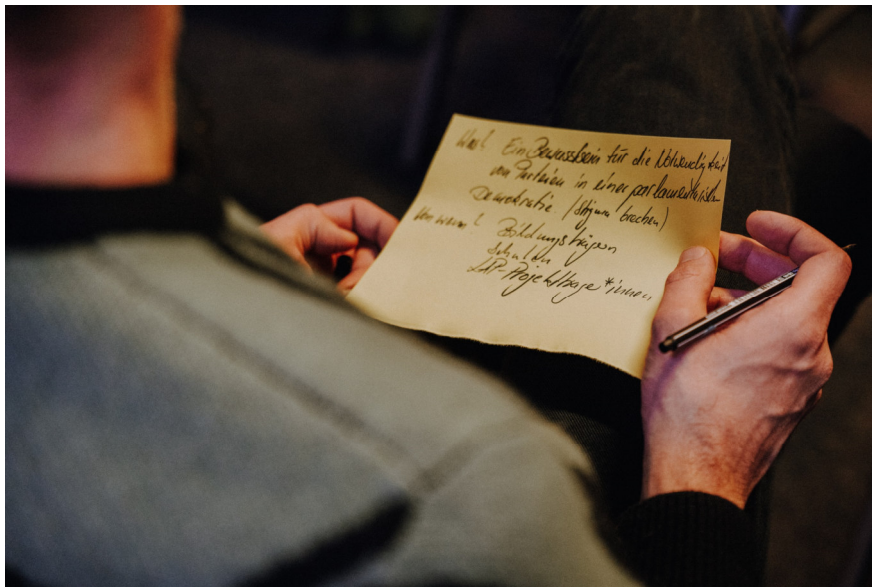 Was? Ein Bewusstsein für die Notwendigkeit
von Parteien in einer parlamentarischen
Demokratie. (Stigma brechen)
Von wem? Bildungsträgern
Schulen
LAP-Projektträger*innen